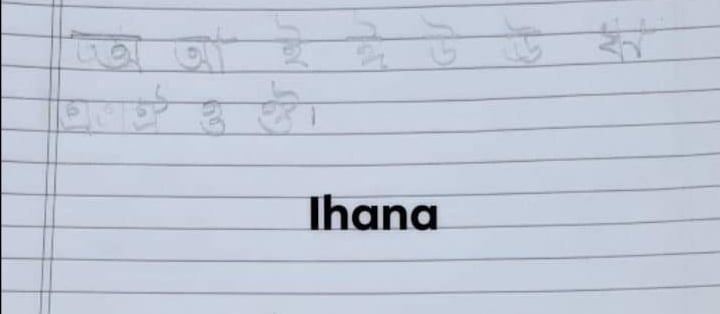 অ আ ই ঈ উ ঊ ঋ
এ ঐ ও ঔ।
Ihana